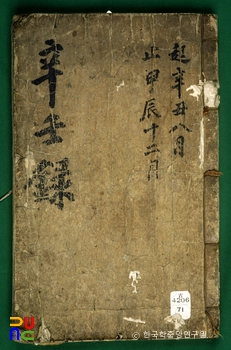 起辛丑八月
止甲辰十二月
辛壬錄
古
4206
71
© 한국학중앙연구원